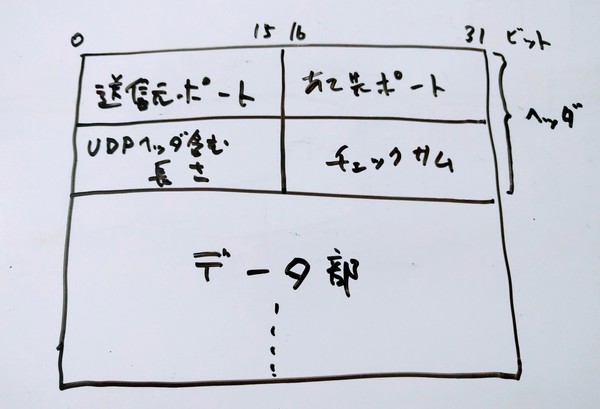 0 15 16 31 ビット
送信元ポート あて先ポート
ヘッダ
UDPヘッダ含む
長さ
チェックサム
データ部